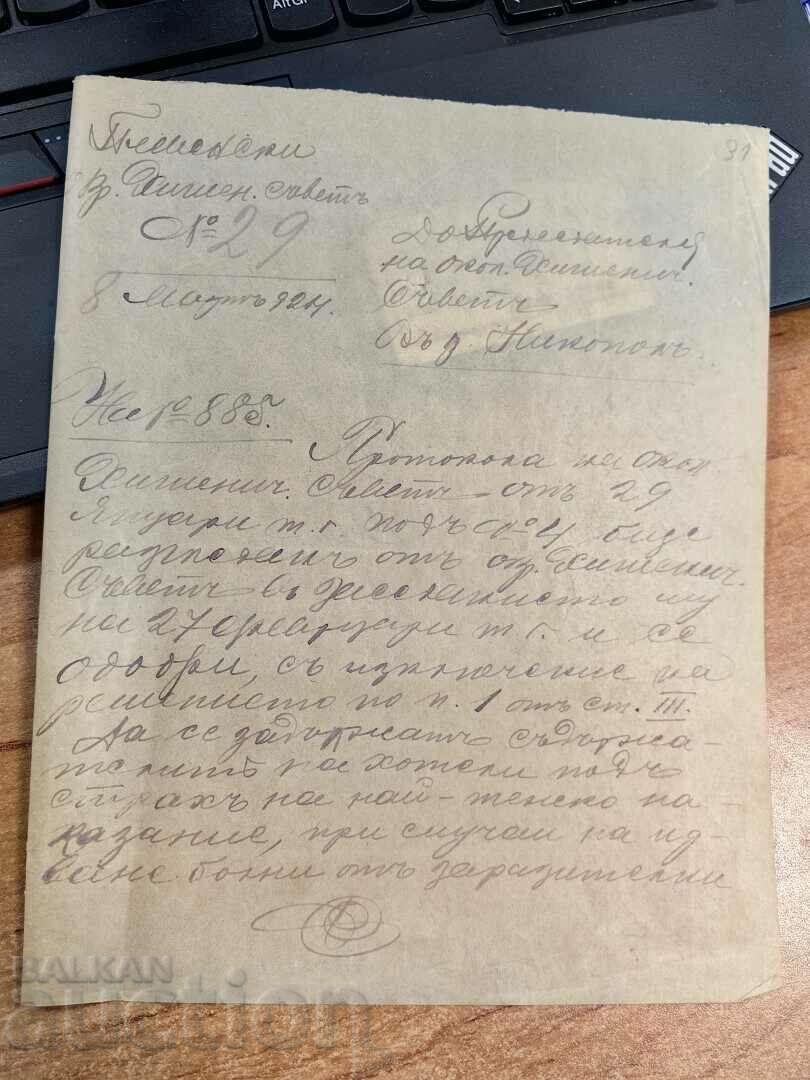 AltGr
91
Плевенски
Хигиен. съветъ
№ 29
8 Мартъ 924.
До Председателя
на окол. Хигиенич.
Съветъ
Въ гр. Никополъ.
На № 885.
Протокола на окол.
Хигиенич. Съветъ отъ 29
Януари т. г. подъ № 4 биде
разгледанъ отъ окр. Хигиенич.
Съветъ въ заседанието му
на 27 февруари т. г. и се
одобри, съ изключение на
решението по п. 1 отъ ст. III.
Да се задържатъ съдържа-
телитѣ на хотели подъ
страхъ на най-тежко на-
казание, при случаи на ид-
ване болни отъ заразителни
BALKAN
auction